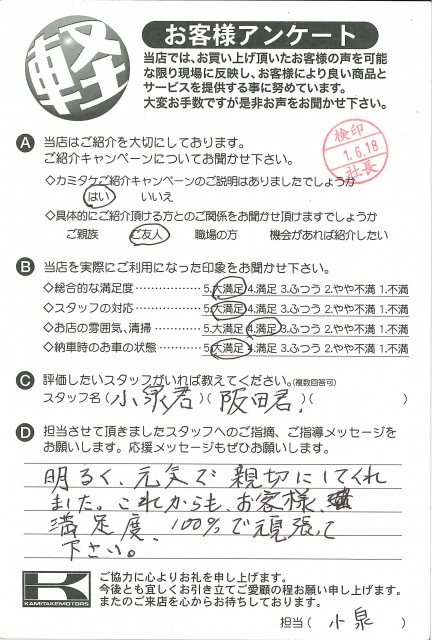 軽
お客様アンケート
当店では、お買い上げ頂いたお客様の声を可能
な限り現場に反映し、お客様により良い商品と
サービスを提供する事に努めています。
大変お手数ですが是非お声をお聞かせ下さい。
A 当店はご紹介を大切にしております。
ご紹介キャンペーンについてお聞かせ下さい。
検印
1.6.18
社長
◇カミタケご紹介キャンペーンのご説明はありましたでしょうか
はい いいえ
◇具体的にご紹介頂ける方とのご関係をお聞かせ頂けますでしょうか
ご親族 ご友人 職場の方 機会があれば紹介したい
B 当店を実際にご利用になった印象をお聞かせ下さい。
◇総合的な満足度 5.大満足 4.満足 3.ふつう 2.やや不満 1.不満
◇スタッフの対応 5.大満足 4.満足 3.ふつう 2.やや不満 1.不満
◇お店の雰囲気、清掃 5.大満足 4.満足 3.ふつう 2.やや不満 1.不満
◇納車時のお車の状態 5.大満足 4.満足 3.ふつう 2.やや不満 1.不満
C 評価したいスタッフがいれば教えてください。(複数回答可)
スタッフ名(小泉君)(阪田君.)( )
D 担当させて頂きましたスタッフへのご指摘、ご指導メッセージを
お願いします。応援メッセージもぜひお願いします。
明るく、元気で親切にしてくれ
ました。これからも、お客様、
満足度、100%で頑張って
下さい。
K
KAMITAKEMOTORS
ご協力に心よりお礼を申し上げます。
今後とも宜しくお引き立てご愛顧の程お願い申し上げます。
またのご来店を心からお待ちしております。
担当( 小泉 )